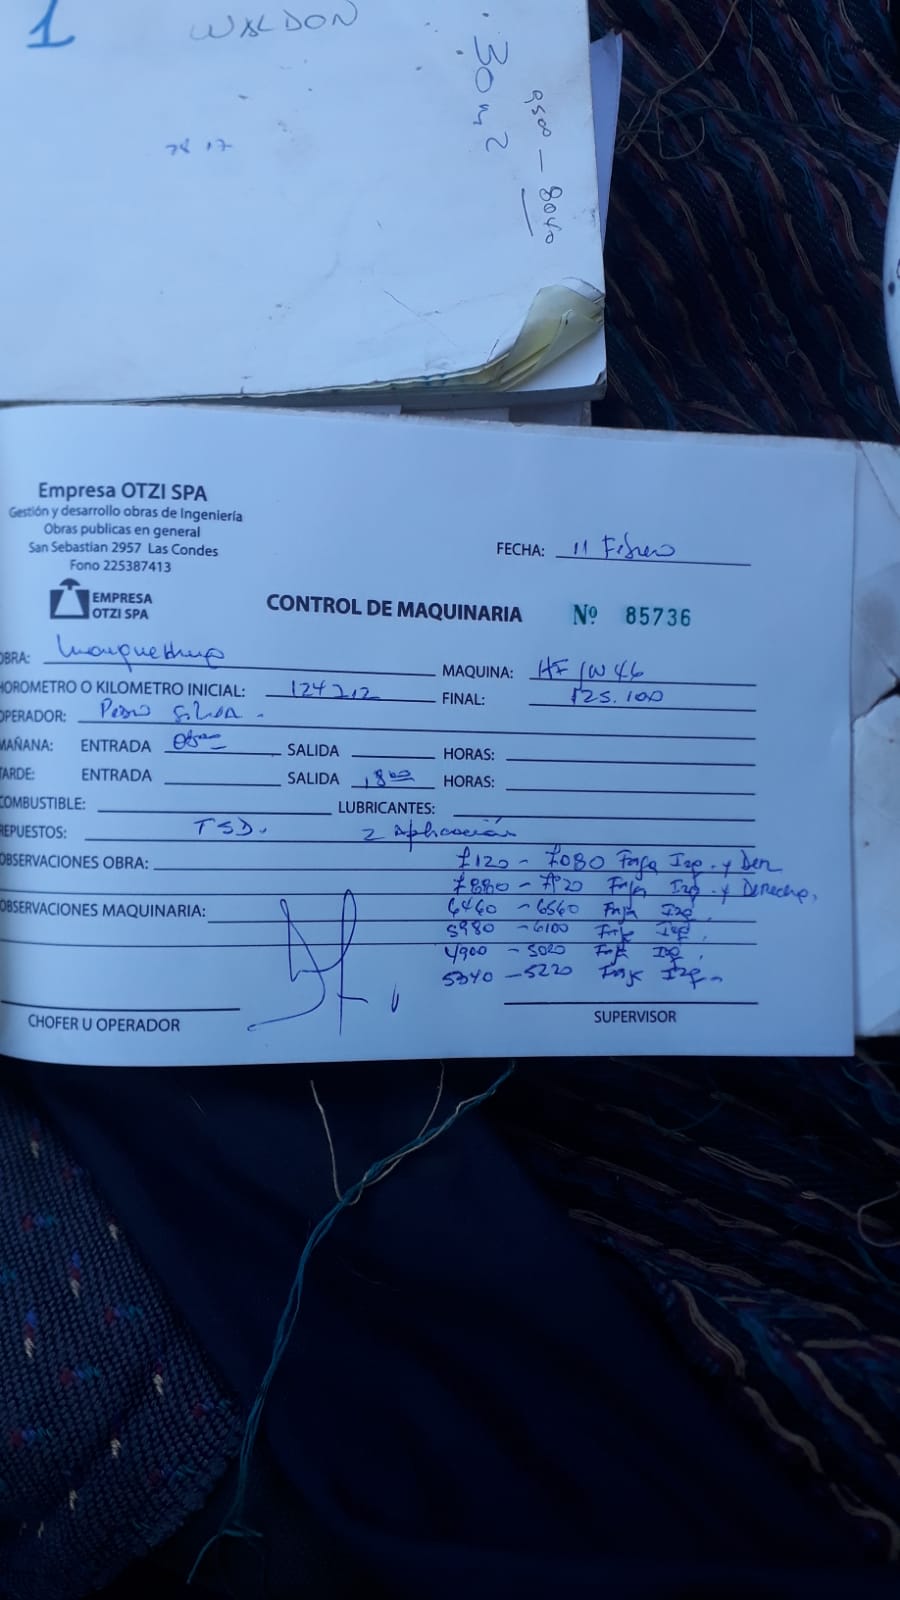 1 WALDON
30 m2
9500 - 8040
7817
Empresa OTZI SPA
Gestión y desarrollo obras de Ingeniería
Obras publicas en general
San Sebastian 2957 Las Condes
Fono 225387413
EMPRESA
OTZI SPA
FECHA: 11 Febrero
CONTROL DE MAQUINARIA Nº 85736
OBRA:
MAQUINA: HF JW 46
HOROMETRO O KILOMETRO INICIAL: 124212
FINAL: 125.100
OPERADOR: Pedro Silva.
MAÑANA: ENTRADA 08:00 SALIDA HORAS:
TARDE: ENTRADA SALIDA 18:00 HORAS:
COMBUSTIBLE: LUBRICANTES:
REPUESTOS: TSD. 2 Aplicación
OBSERVACIONES OBRA: 7120 - 7080 Faja Izq. y Der
7880 - 7920 Faja Izq. y Derecha,
OBSERVACIONES MAQUINARIA: 6460 - 6560 Faja Izq.
5980 - 6100 Faja Izq.
4900 - 5020 Faja Izq.
5340 - 5220 Faja Izq.
CHOFER U OPERADOR
SUPERVISOR